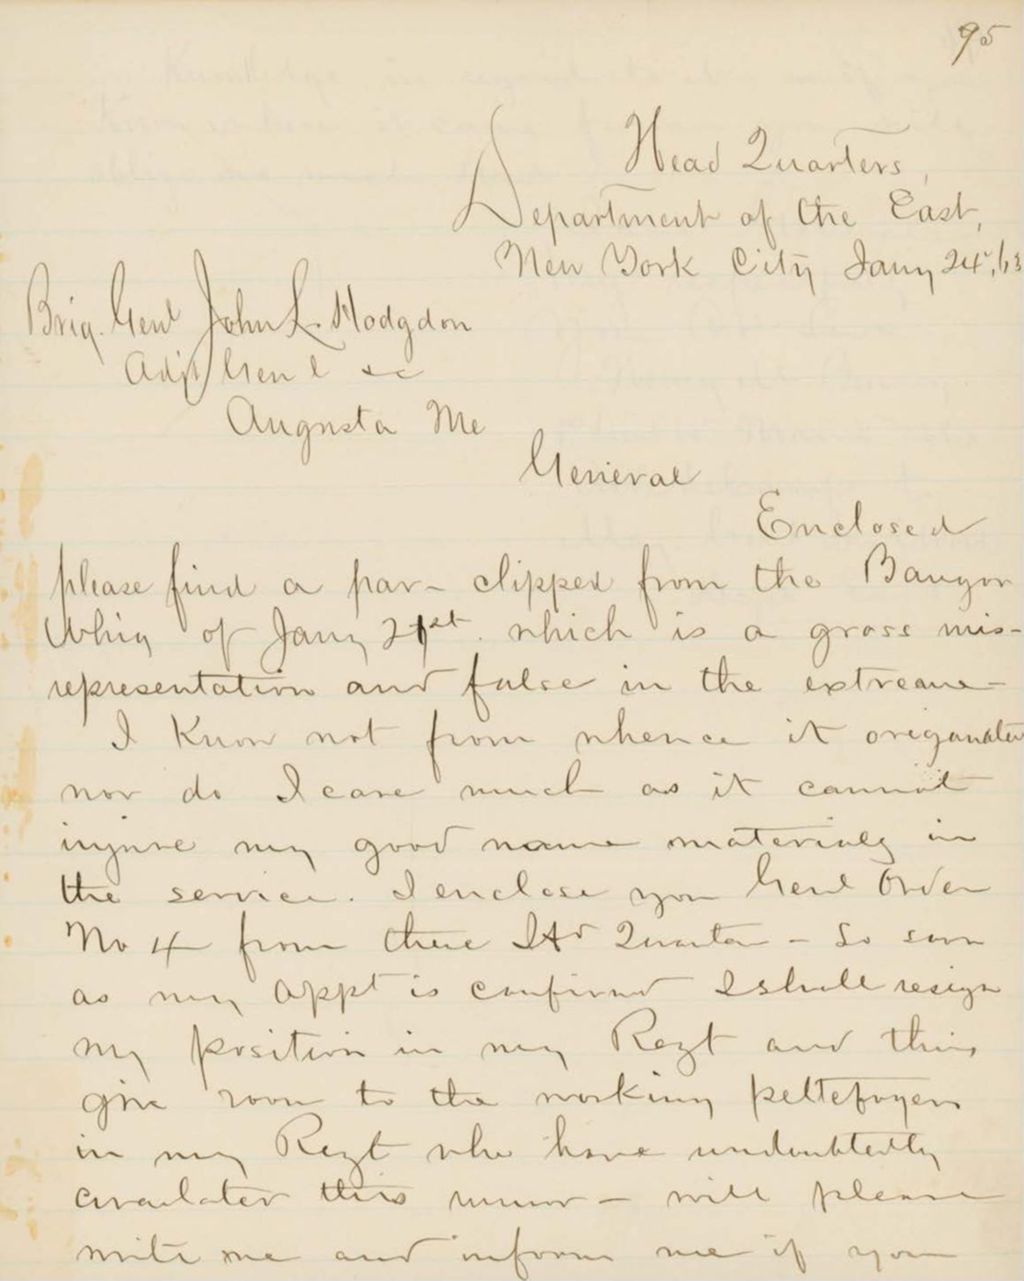 95
Head Quarters,
Department of the East,
New York City Jany 24", /63
Brig. Genl John L. Hodgdon
Adjt Genl &c
Augusta Me
General
Enclosed
please find a par- clipped from the Bangor
Whig of Jany 21st. which is a gross mis-
representation and false in the extreame-
I Know not from whence it origanated
nor do I care much as it cannot
injure my good name materialy in
the service. I enclose you Genl Order
No 4 from these Hd Quarters - So soon
as my appt is confirmd I shall resign
my position in my Regt and thus
give room to the working pettefogers
in my Regt who have undoubtedly
circulated this rumor - will please
write me and inform me if you